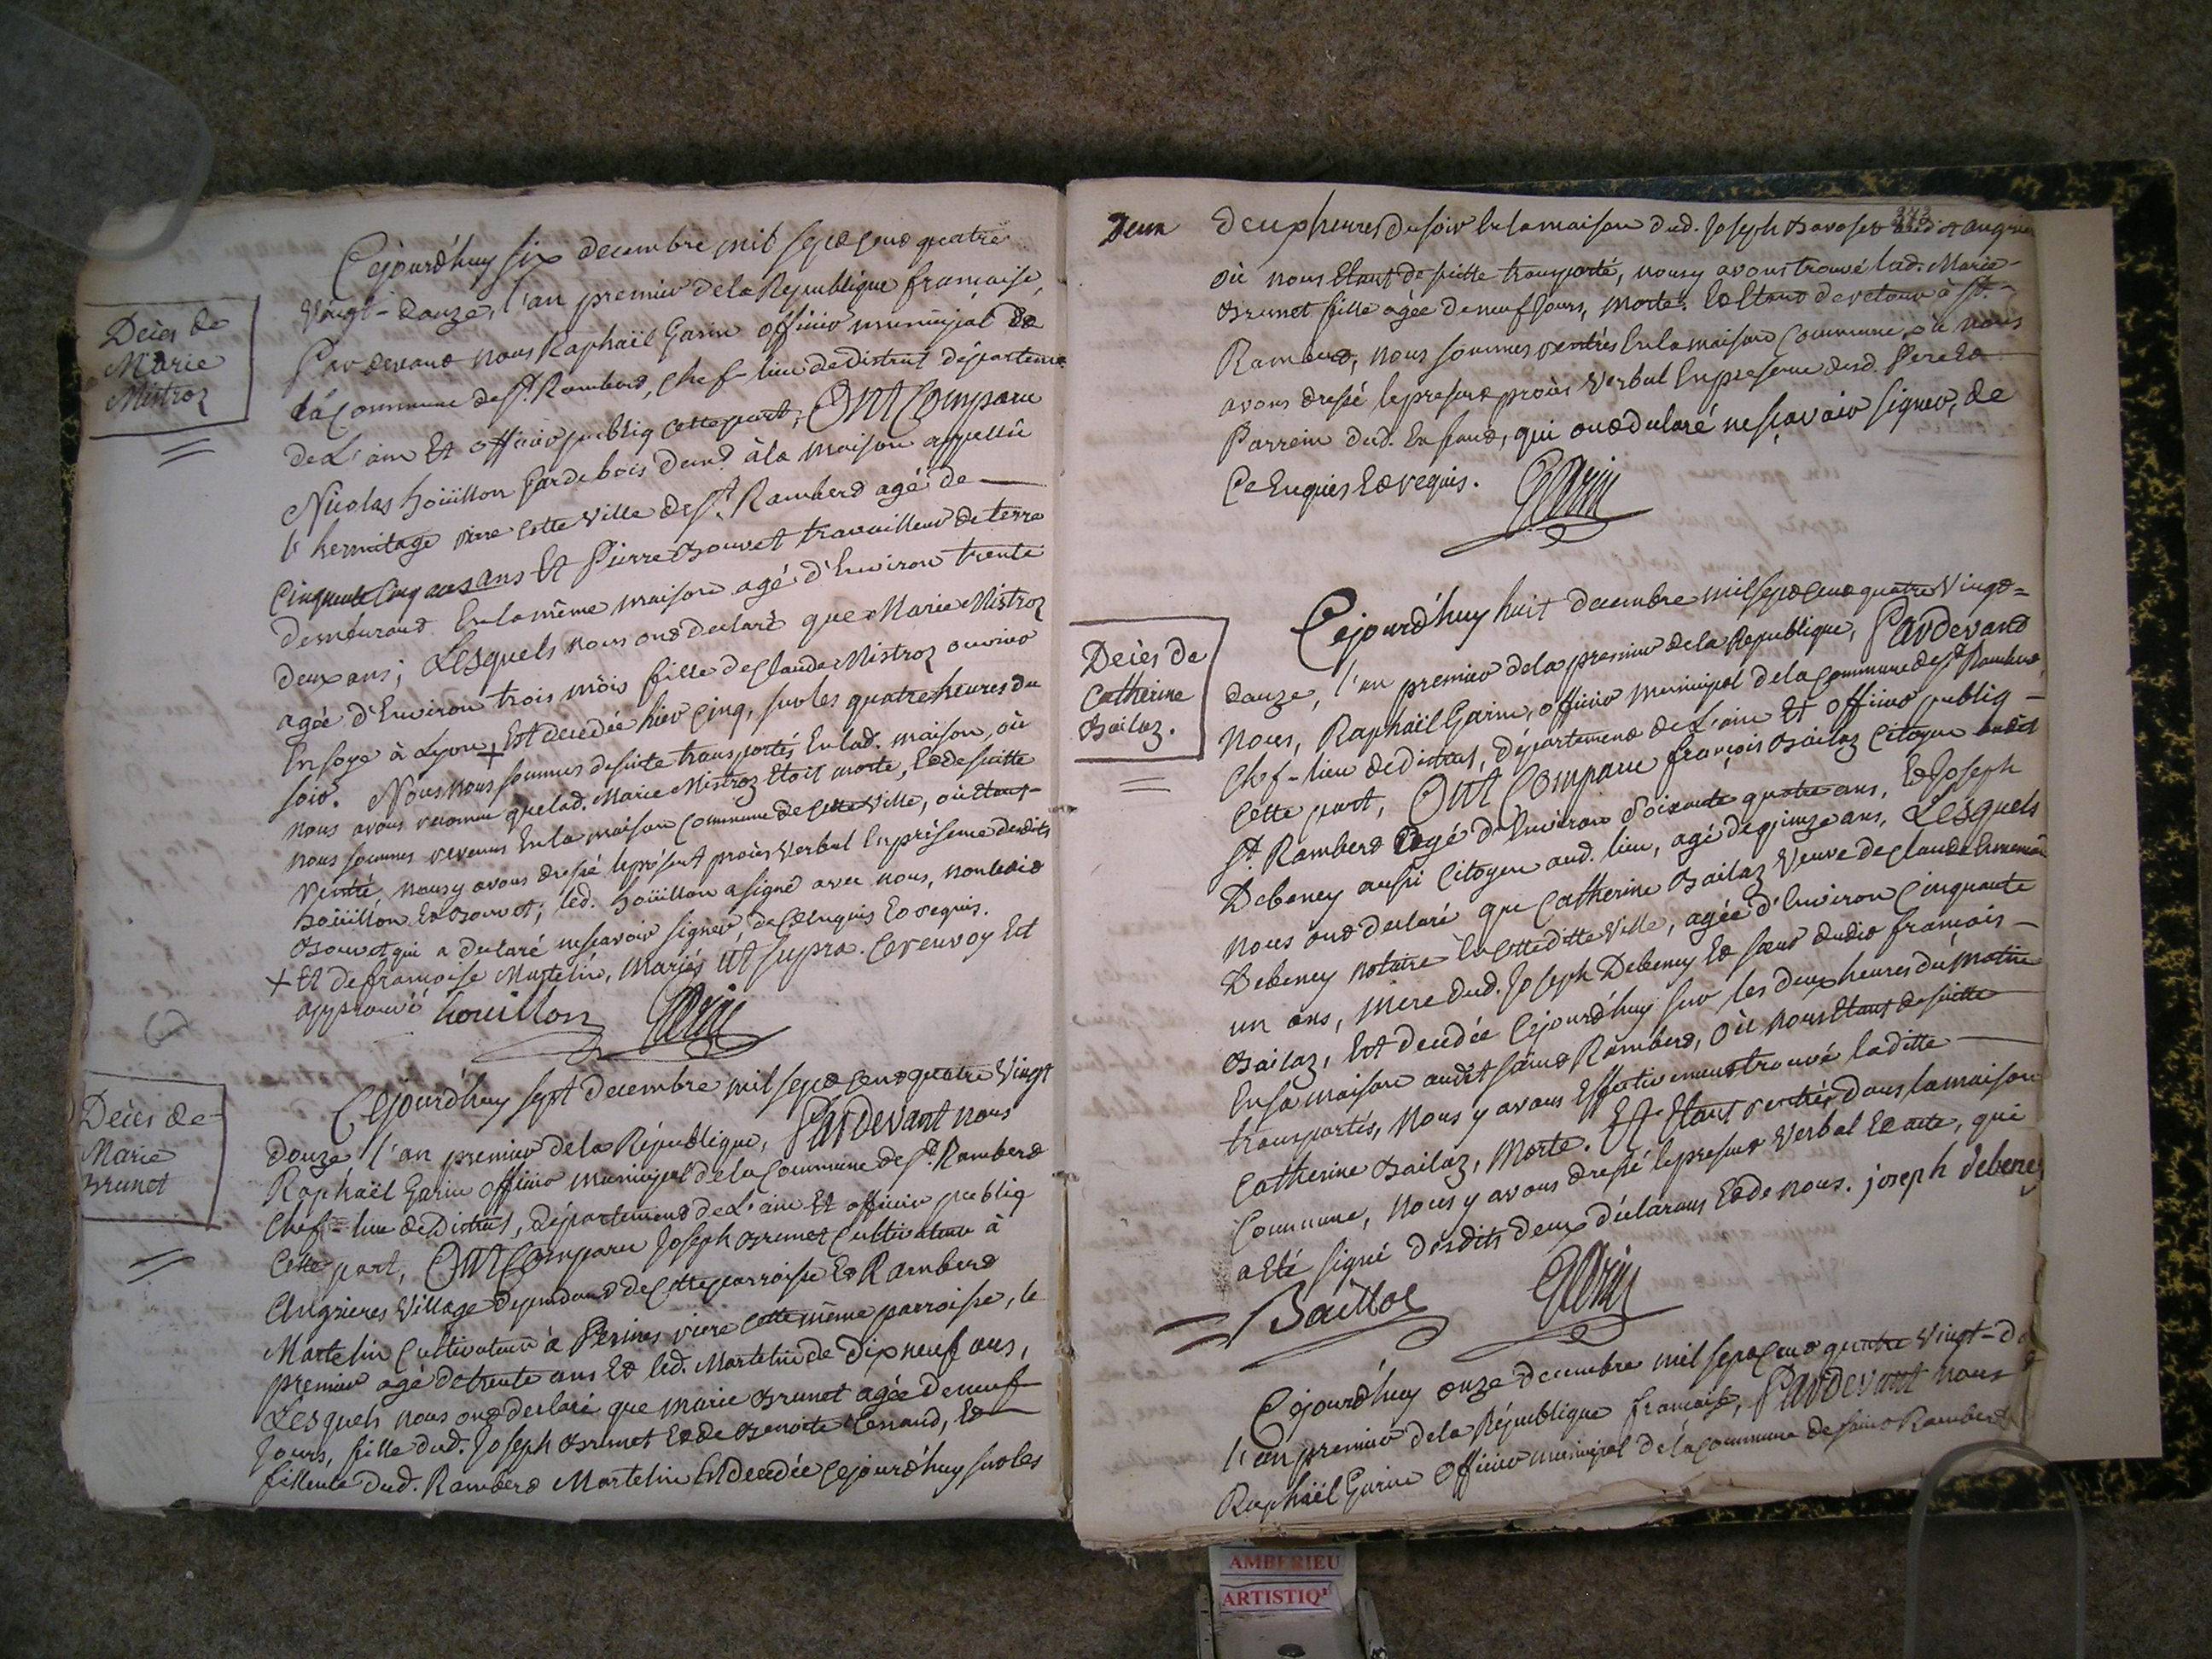 Cejourd'huy six decembre mil sept cent quatre
Vingt-douze, l'an premier de la Republique française,
Pardevant nous Raphaël Garin officier municipal de
la Commune de St. Rambert, Chef-lieu de district départeme
de L'ain Et officier publiq cette part, Ont Comparu
Nicolas hoüillon garde bois dem.t à la maison appellée
l'hermitage rière cette ville de St. Rambert agé de
Cinquante cinq ans ans Et Pierre Bouvet travailleur de terre
demeurant En la même maison agé d'Environ trente
deux ans; Lesquels nous ont declaré que Marie Mistroz
agée d'Environ trois mois fille de Claude Mistroz ouvrier
En soye à Lyon + Est decedée hier cinq, sur les quatre heures du
soir. Nous nous sommes de suite transportés En lad. maison, où
nous avons reconnu que lad. Marie Mistroz Etoit morte, Et de suitte
nous sommes revenus En la maison Commune de Cette ville, où Etant
rentré, nous y avons dressé le présent procès verbal En présence desdits
hoüillon Et Bouvet; led. hoüillon a signé avec nous, non ledit
Bouvet qui a declaré ne scavoir signer de Ce Enquis Et requis.
+ Et de françoise Martelin, mariés ut supra. Ce renvoy Est
approuvé houillon Garin
Décès de
Marie
Mistroz
Cejourd'huy sept decembre mil sept cent quatre Vingt
douze l'an premier de la République, Pardevant nous
Raphaël Garin officier municipal de la Commune de St. Rambert
Chef-lieu de District, Département de L'ain Et officier publiq
Cette part, Ont Comparu Joseph Brunet Cultivateur à
Angrieres Village dependant de Cette parroisse Et Rambert
Martelin Cultivateur à Serines riere Cette même parroisse, le
premier agé de trente ans Et led. Martelin de dix neuf ans,
Lesquels nous ont declaré que marie Brunet agée de neuf
Jours, fille dud. Joseph Brunet Et de Benoite Et
filleule dud. Rambert Martelin Est decedée cejourd'huy sur les
Décès de
Marie
Brunet
Deux
373
deux heures du soir En la maison dud. Joseph
où nous Etant de suitte transporté, nous y avons trouvé lad. Marie
Brunet fille agée de neuf Jours, morte. Et Etant de retour à St.
Rambert, nous sommes rentrés En la maison Commune, où nous
avons dressé le present procès Verbal En presence desd. Pere Et
Parrein dud. Enfant, qui ont declaré ne sçavoir signer, de
Ce Enquis Et requis. Garin
Cejourd'huy huit decembre mil sept cent quatre Vingt=
douze, l'an premier de la premier de la Republique, Pardevant
nous, Raphaël Garin, officier municipal de la Commune de St. Rambert
Chef-lieu de district, département de L'ain Et officier publiq
Cette part, Ont Comparu françois Bailaz Citoyen audit
St. Rambert agé d'Environ soixante quatre ans, Et Joseph
Debeney aussi Citoyen aud. lieu, agé de quinze ans, Lesquels
nous ont declaré que Catherine Bailaz Veuve de Claude
Debeney notaire En Cette ditte Ville, agée d'Environ Cinquante
un ans, mere dud. Joseph Debeney Et sœur dudit françois
Bailaz, Est decedée Cejourd'huy sur les deux heures du matin
En sa maison audit saint Rambert, où nous Etant de suitte
transportés, nous y avons Effectivement trouvé laditte
Catherine Bailaz, Morte. Et Etant rentrés dans la maison
Commune, nous y avons dressé le present Verbal Et acte, qui
a Eté signé desdits deux déclarans Et de nous. joseph debeney
Baillat Garin
Décès de
Catherine
Bailaz.
Cejourd'huy onze decembre mil sept cent quatre Vingt-do
l'an premier de la République française, Pardevant nous
Raphaël Garin officier municipal de la Commune de saint Rambert
AMBERIEU
ARTISTIQ'